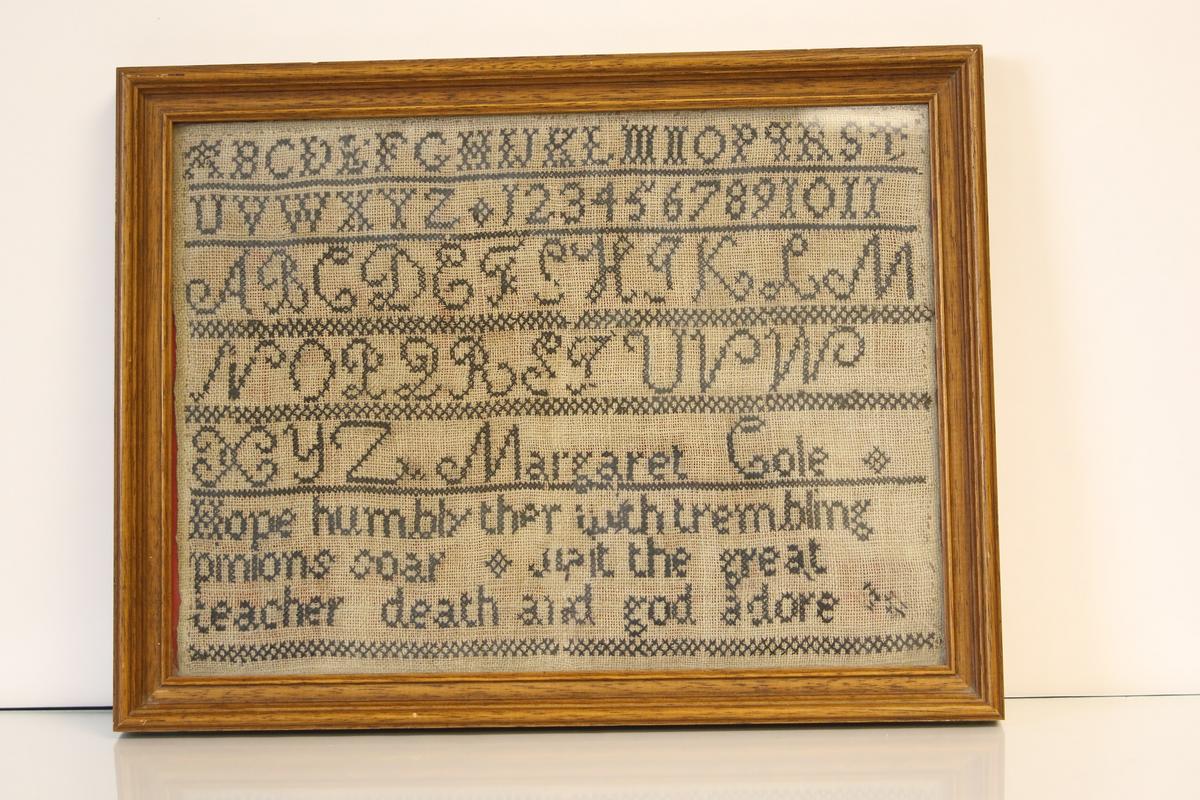 ABCDEFGHIJKLMNOPQRST
UVWXYZ 1234567891011
ABCDEFGHIJKLM
NOPQRSTUVW
XYZ Margaret Cole
Hope humbly ther with trembling
pinions soar wait the great
teacher death and god adore